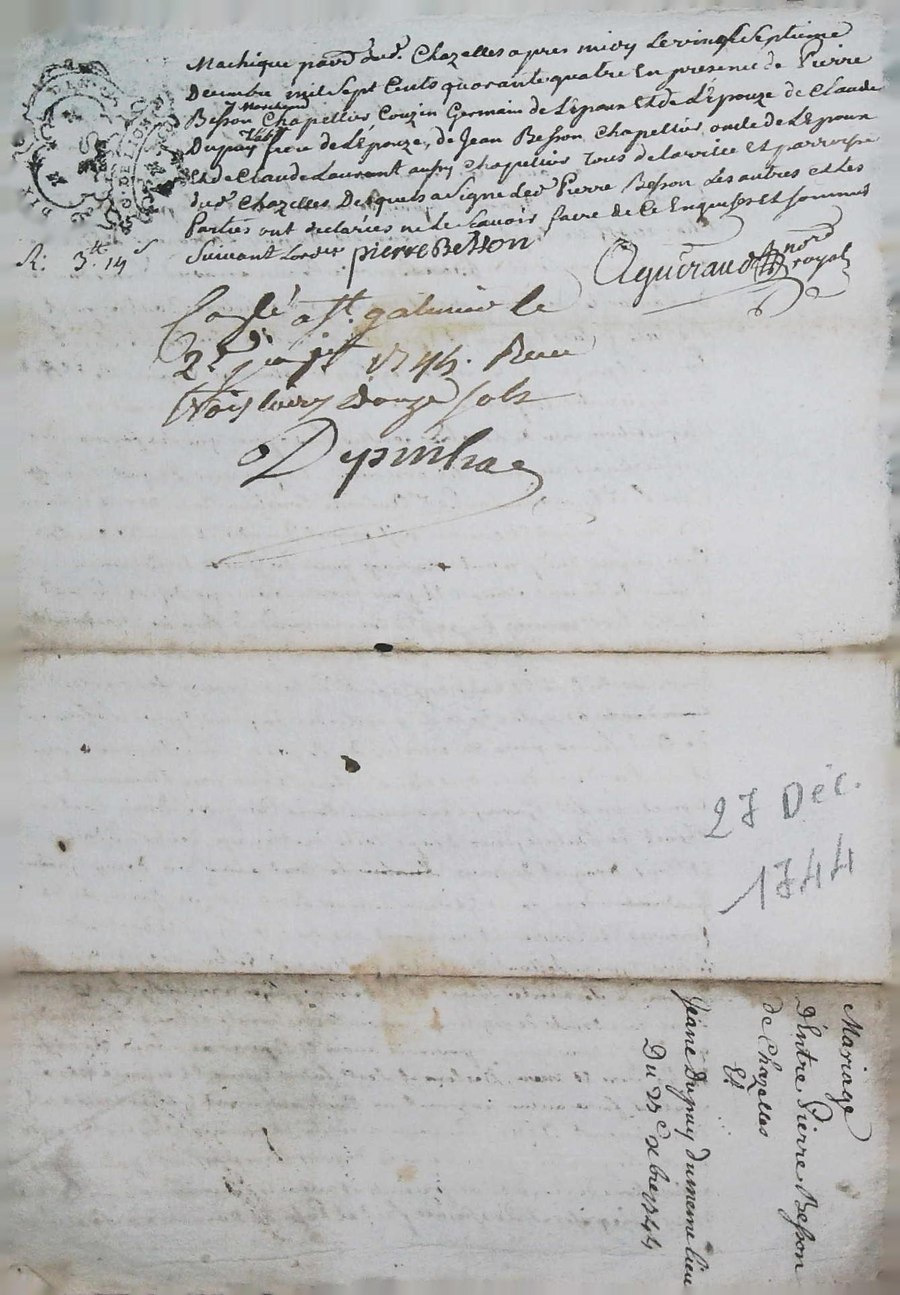 Machique paroisse dud. Chazelles apres midy Le vingt Septieme
Decembre mil Sept Cents quarante quatre En presence de Pierre
Besson Chapellier Couzin Germain de L'Epoux Et de L'Epouze de Claude
Dupuy frere de L'Epouze, de Jean Besson Chapellier oncle de L'Epoux
Et de Claude Laurant aussy Chapellier Tous de la ville Et parroisse
dud. Chazelles Desquels a Signé led. Pierre Besson Les autres et les
Parties ont declarées ne le Scavoir faire de Ce Enquis Et sommés
Suivant Lordce pierre Besson
R: 3tt 14s
Aguéraud nore royal
a St. galmier le
1745. Receu
trois livres douze sols
27 Déc.
1744
Mariage
D'Entre Pierre Besson
de Chazelles
Et
Jeane Dupuy du meme lieu
Du 27e xbre 1744